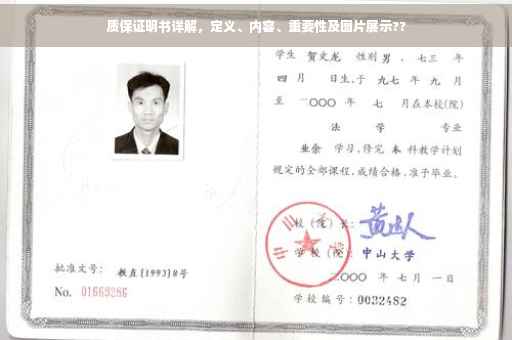 质保证明书详解，定义、内容、重要性及图片展示??
学生 贺文龙 性别 男 、七三 年
四 月 日生,于 九七 年 九 月
至 二〇〇〇 年 七 月在本校(院)
法 学 专业
业余 学习,修完 本 科教学计划
规定的全部课程,成绩合格,准予毕业。
校 (院) 长:
学 校 (院): 中山大学
二〇〇〇 年 七 月 一 日
学校编号: 0032482
批准文号: 教直[1993]8号
No. 01669286